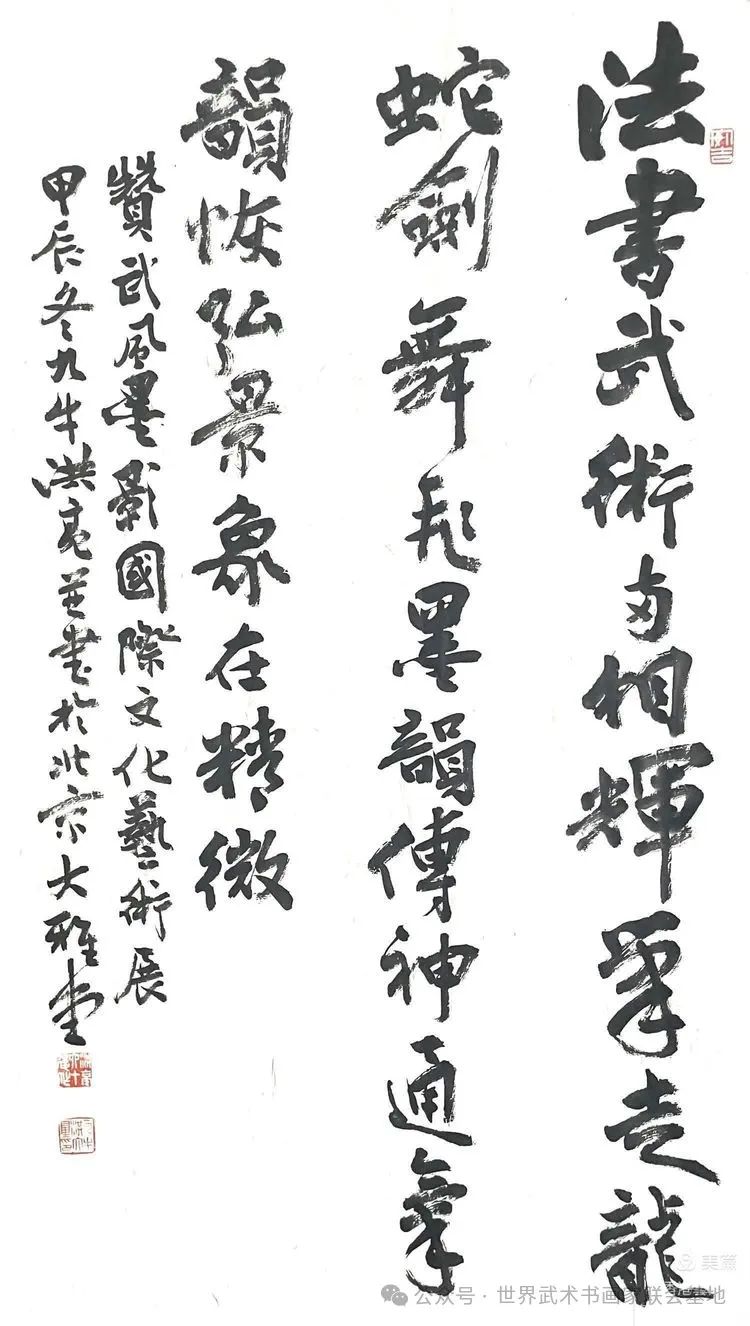 法書武術相輝筆走龍
蛇劍舞飛墨韻傳神通氣
韻恢弘景象在精微
贊武風墨影國際文化藝術展
甲辰冬九牛洪亮並書於北京大雅堂
美篇
公众号·世界武术书画家联会基地